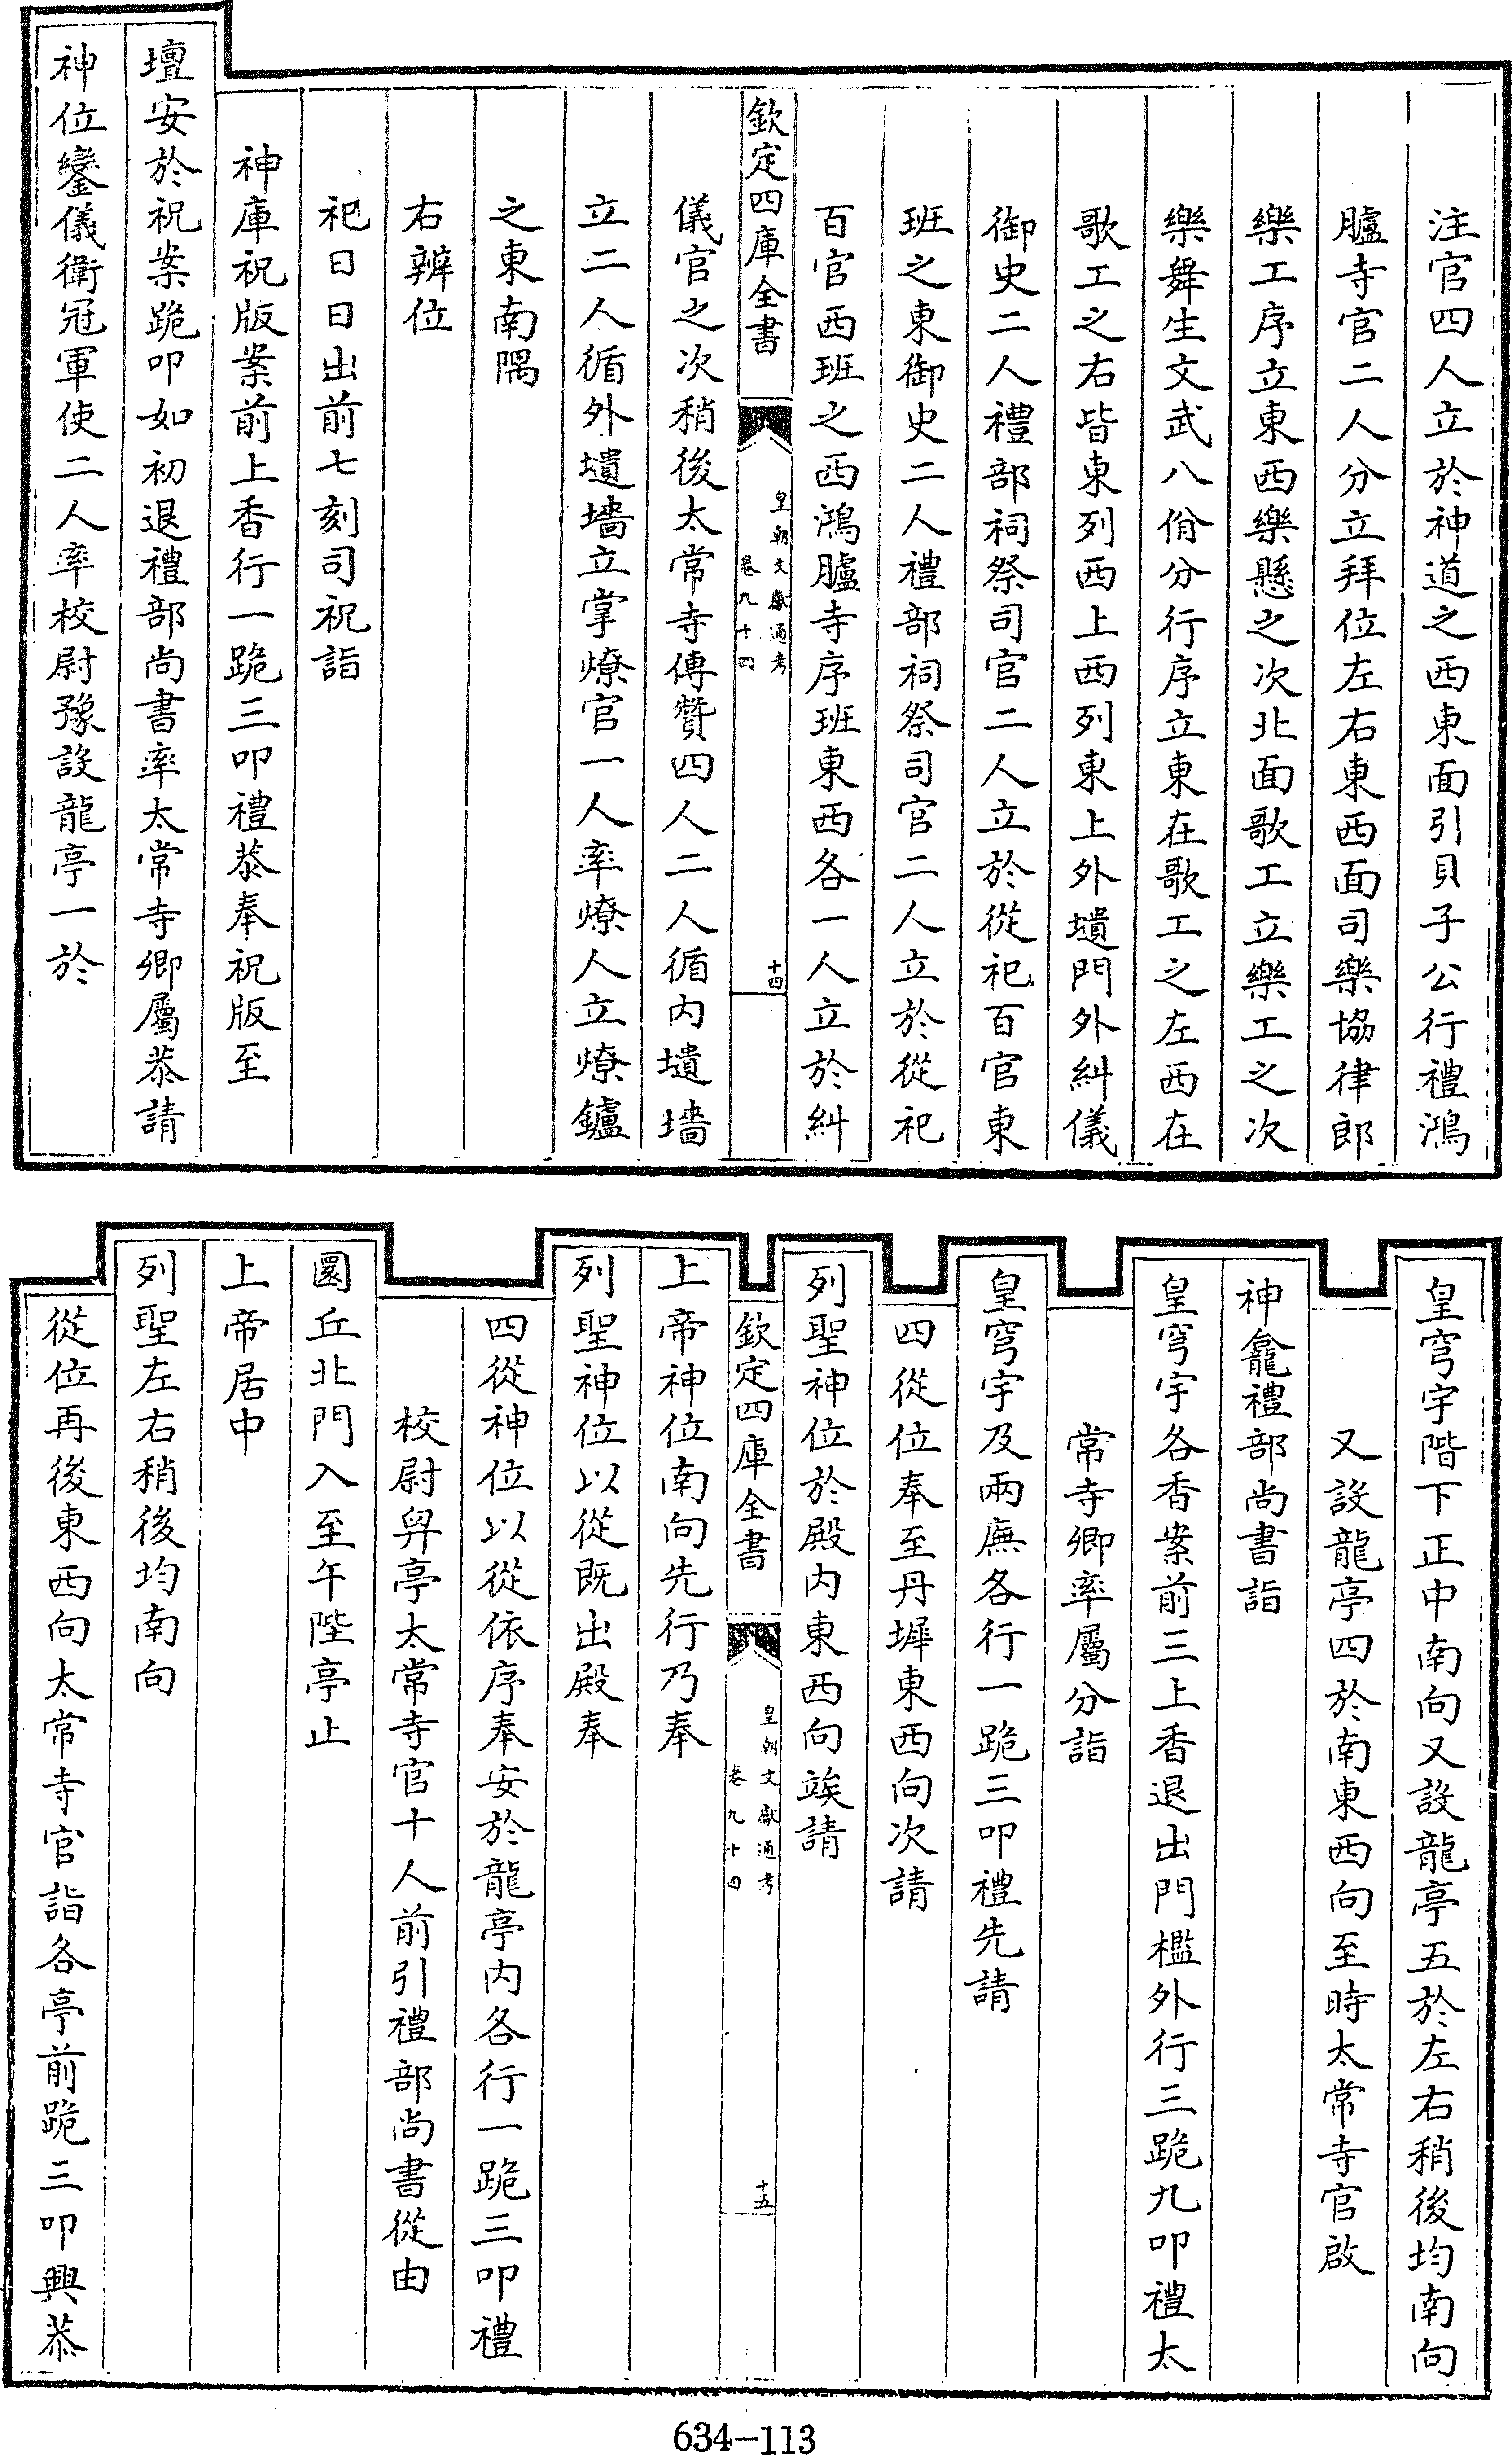 注官四人立於神道之西東面引貝子公行禮鴻
臚寺官二人分立拜位左右東西面司樂協律郎
樂工序立東西樂懸之次北面歌工立樂工之次
樂舞生文武八佾分行序立東在歌工之左西在
歌工之右皆東列西上西列東上外壝門外糾儀
御史二人禮部祠祭司官二人立於從祀百官東
班之東御史二人禮部祠祭司官二人立於從祀
百官西班之西鴻臚寺序班東西各一人立於糾
欽定四庫全書
皇朝文獻通考
卷九十四
十四
儀官之次稍後太常寺傳贊四人二人循内壝墻
立二人循外壝墻立掌燎官一人率燎人立燎鑪
之東南隅
右辨位
祀日日出前七刻司祝詣
神庫祝版案前上香行一跪三叩禮恭奉祝版至
壇安於祝案跪叩如初退禮部尚書率太常寺卿屬恭請
神位鑾儀衛冠軍使二人率校尉豫設龍亭一於
皇穹宇階下正中南向又設龍亭五於左右稍後均南向
又設龍亭四於南東西向至時太常寺官啟
神龕禮部尚書詣
皇穹宇各香案前三上香退出門檻外行三跪九叩禮太
常寺卿率屬分詣
皇穹宇及兩廡各行一跪三叩禮先請
四從位奉至丹墀東西向次請
列聖神位於殿内東西向竢請
欽定四庫全書
皇朝文獻通考
卷九十四
十五
上帝神位南向先行乃奉
列聖神位以從既出殿奉
四從神位以從依序奉安於龍亭内各行一跪三叩禮
校尉舁亭太常寺官十人前引禮部尚書從由
圜丘北門入至午陛亭止
上帝居中
列聖左右稍後均南向
從位再後東西向太常寺官詣各亭前跪三叩興恭
634-113